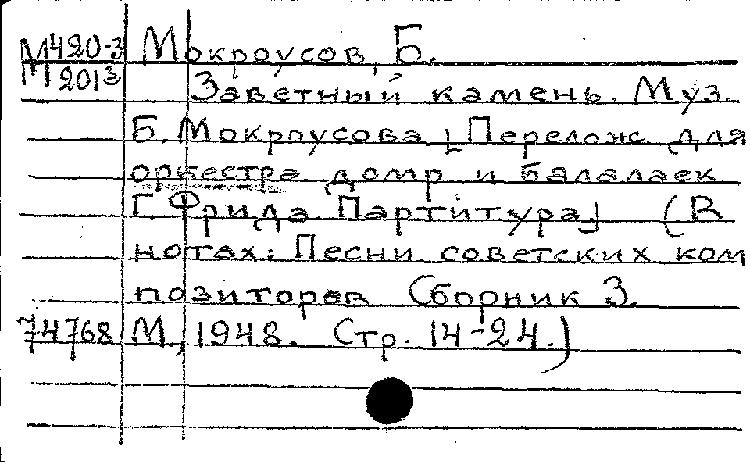 М420-3 Мокроусов, Б.
М2013 Заветный камень. Муз.
Б. Мокроусова [Перелож. для
оркестра домр и балалаек
Г. Фрида Партитура] (В
нотах: Песни советских ком
позиторов Сборник 3.
74768 М., 1948. Стр. 14-24.)